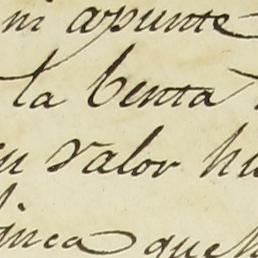 ni apunte
la benta
su valor hu
finca que h